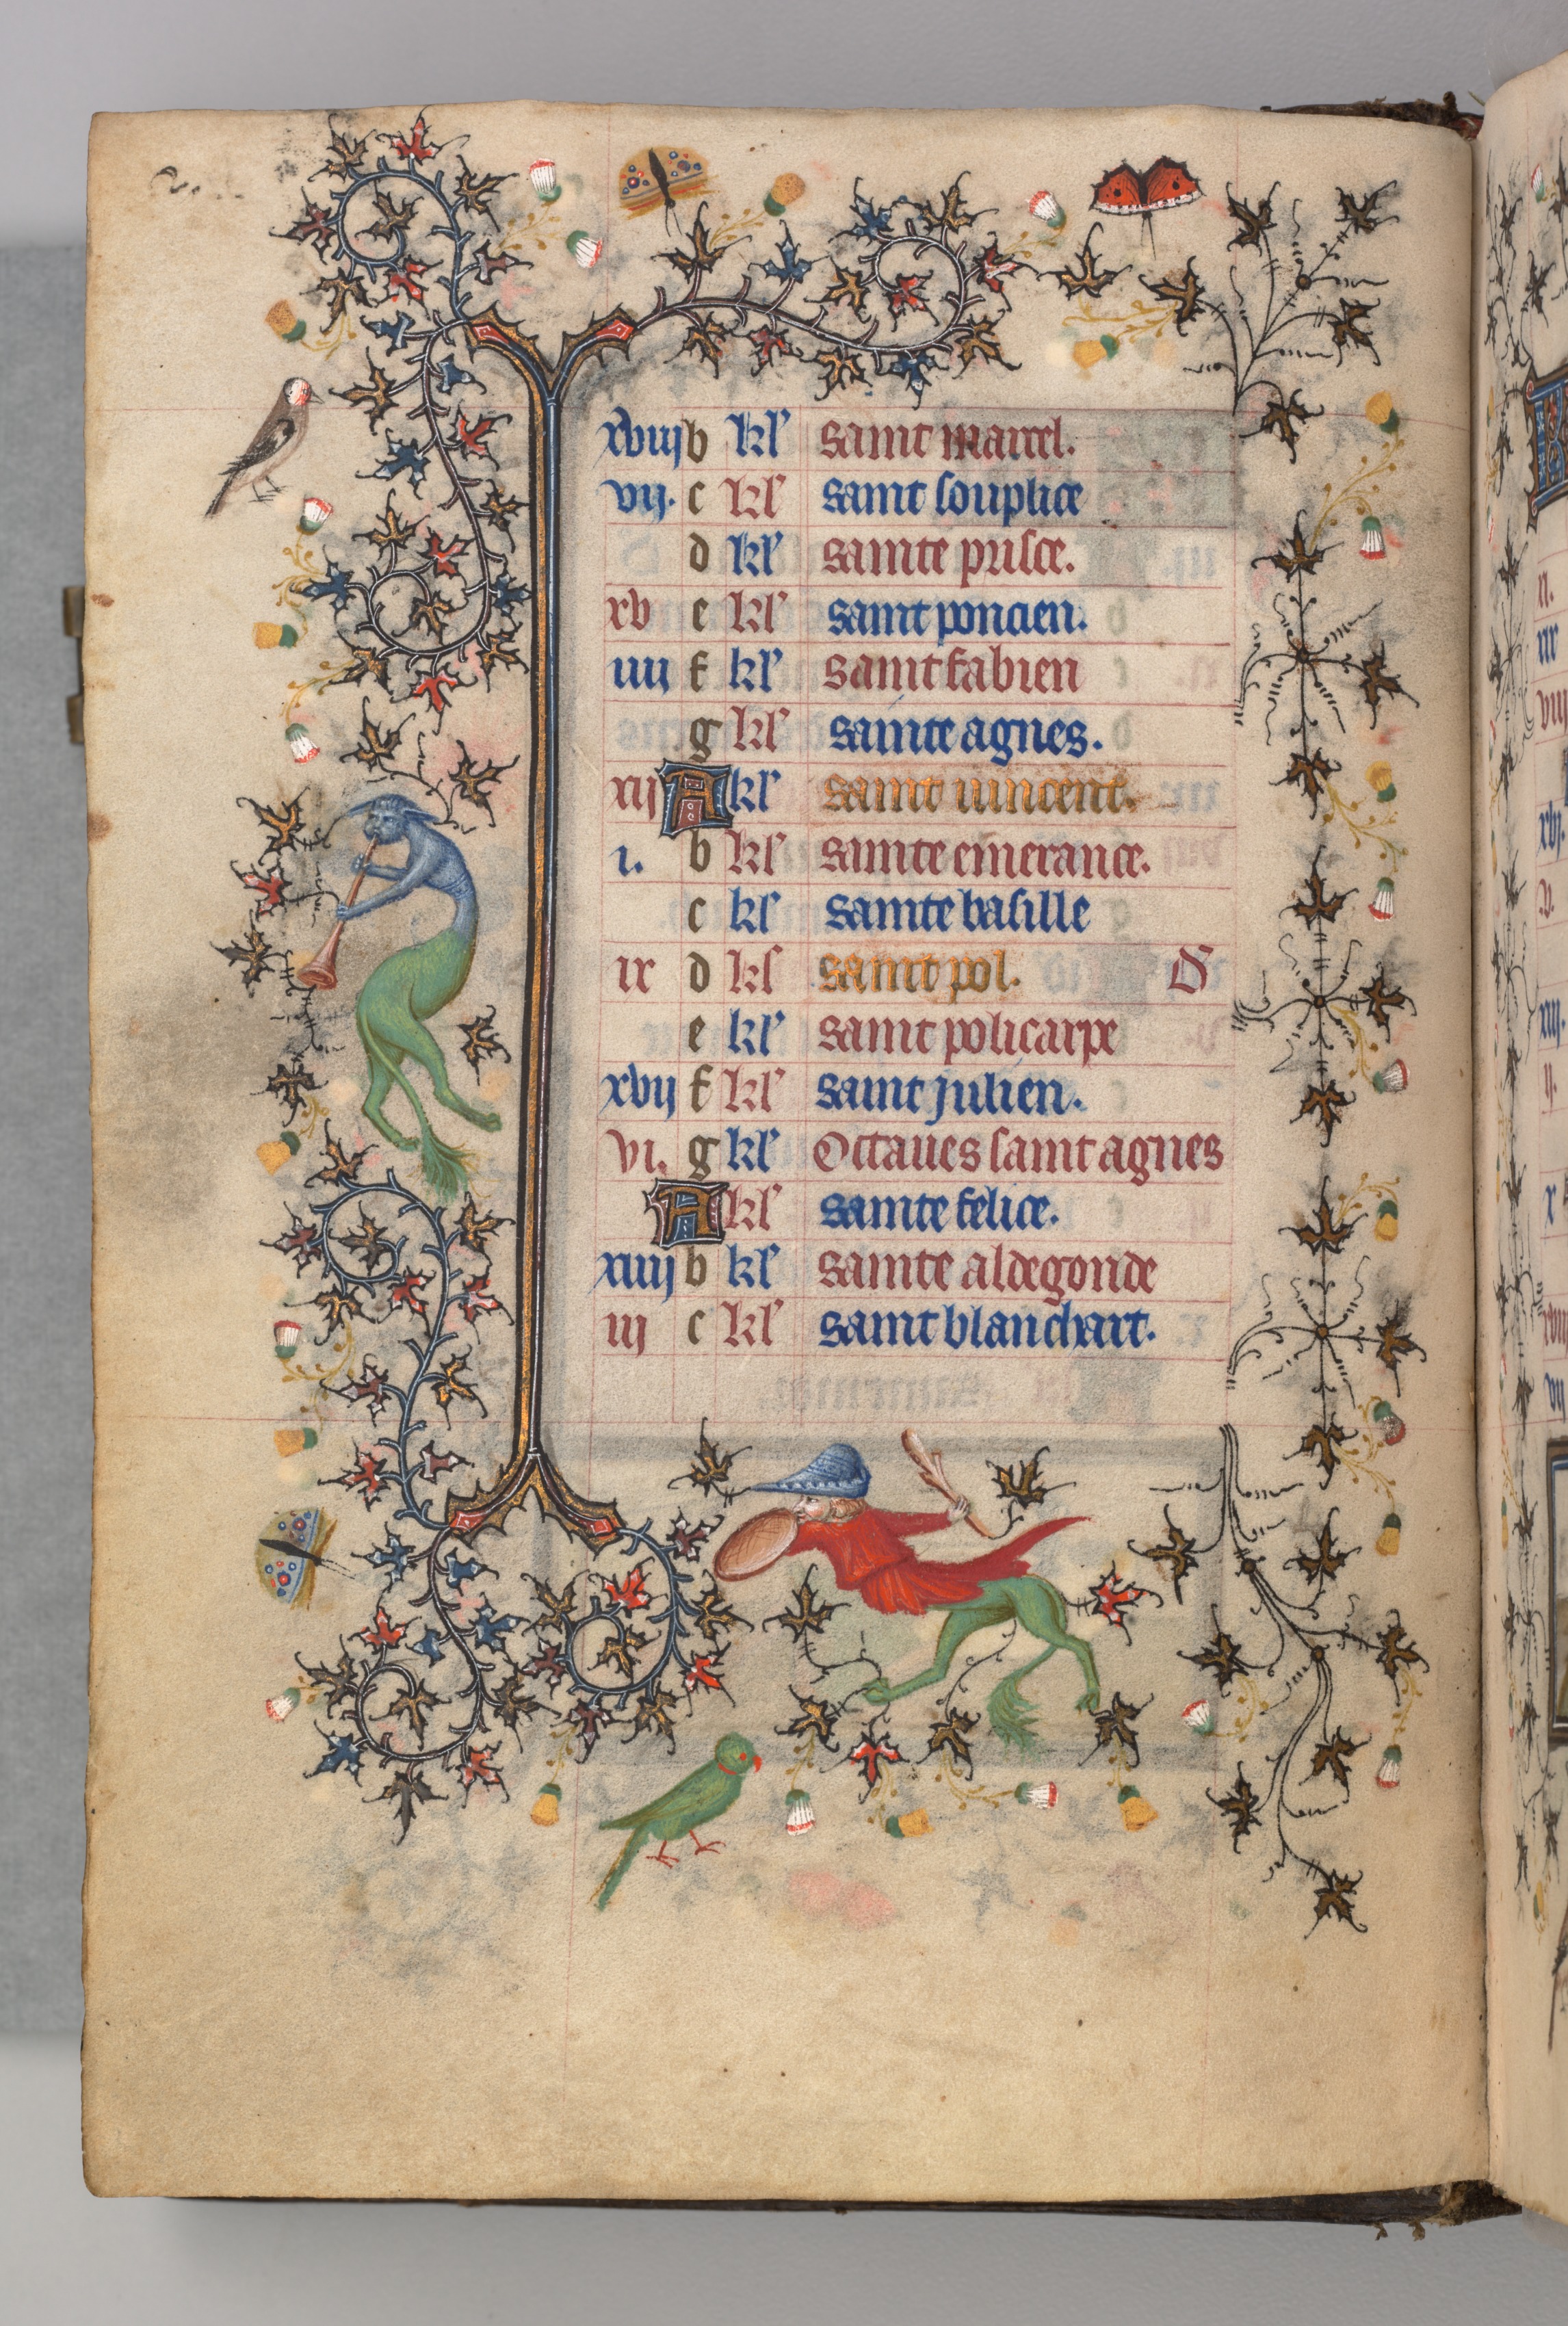 xviij b kl' saint marcel.
vij. c kl' saint souplice
d kl' sainte prisce.
xv e kl' saint poncien.
iiii f kl' saint fabien
g kl' sainte agnes.
xij A kl' saint vincent.
i. b kl' sainte emerance.
c kl' sainte basille
ix d kl' saint pol. D
e kl' saint policarpe
xvij f kl' saint julien.
vi. g kl' Octaves saint agnes
A kl' sainte felice.
xiiij b kl' sainte aldegonde
iij c kl' saint blanchart.